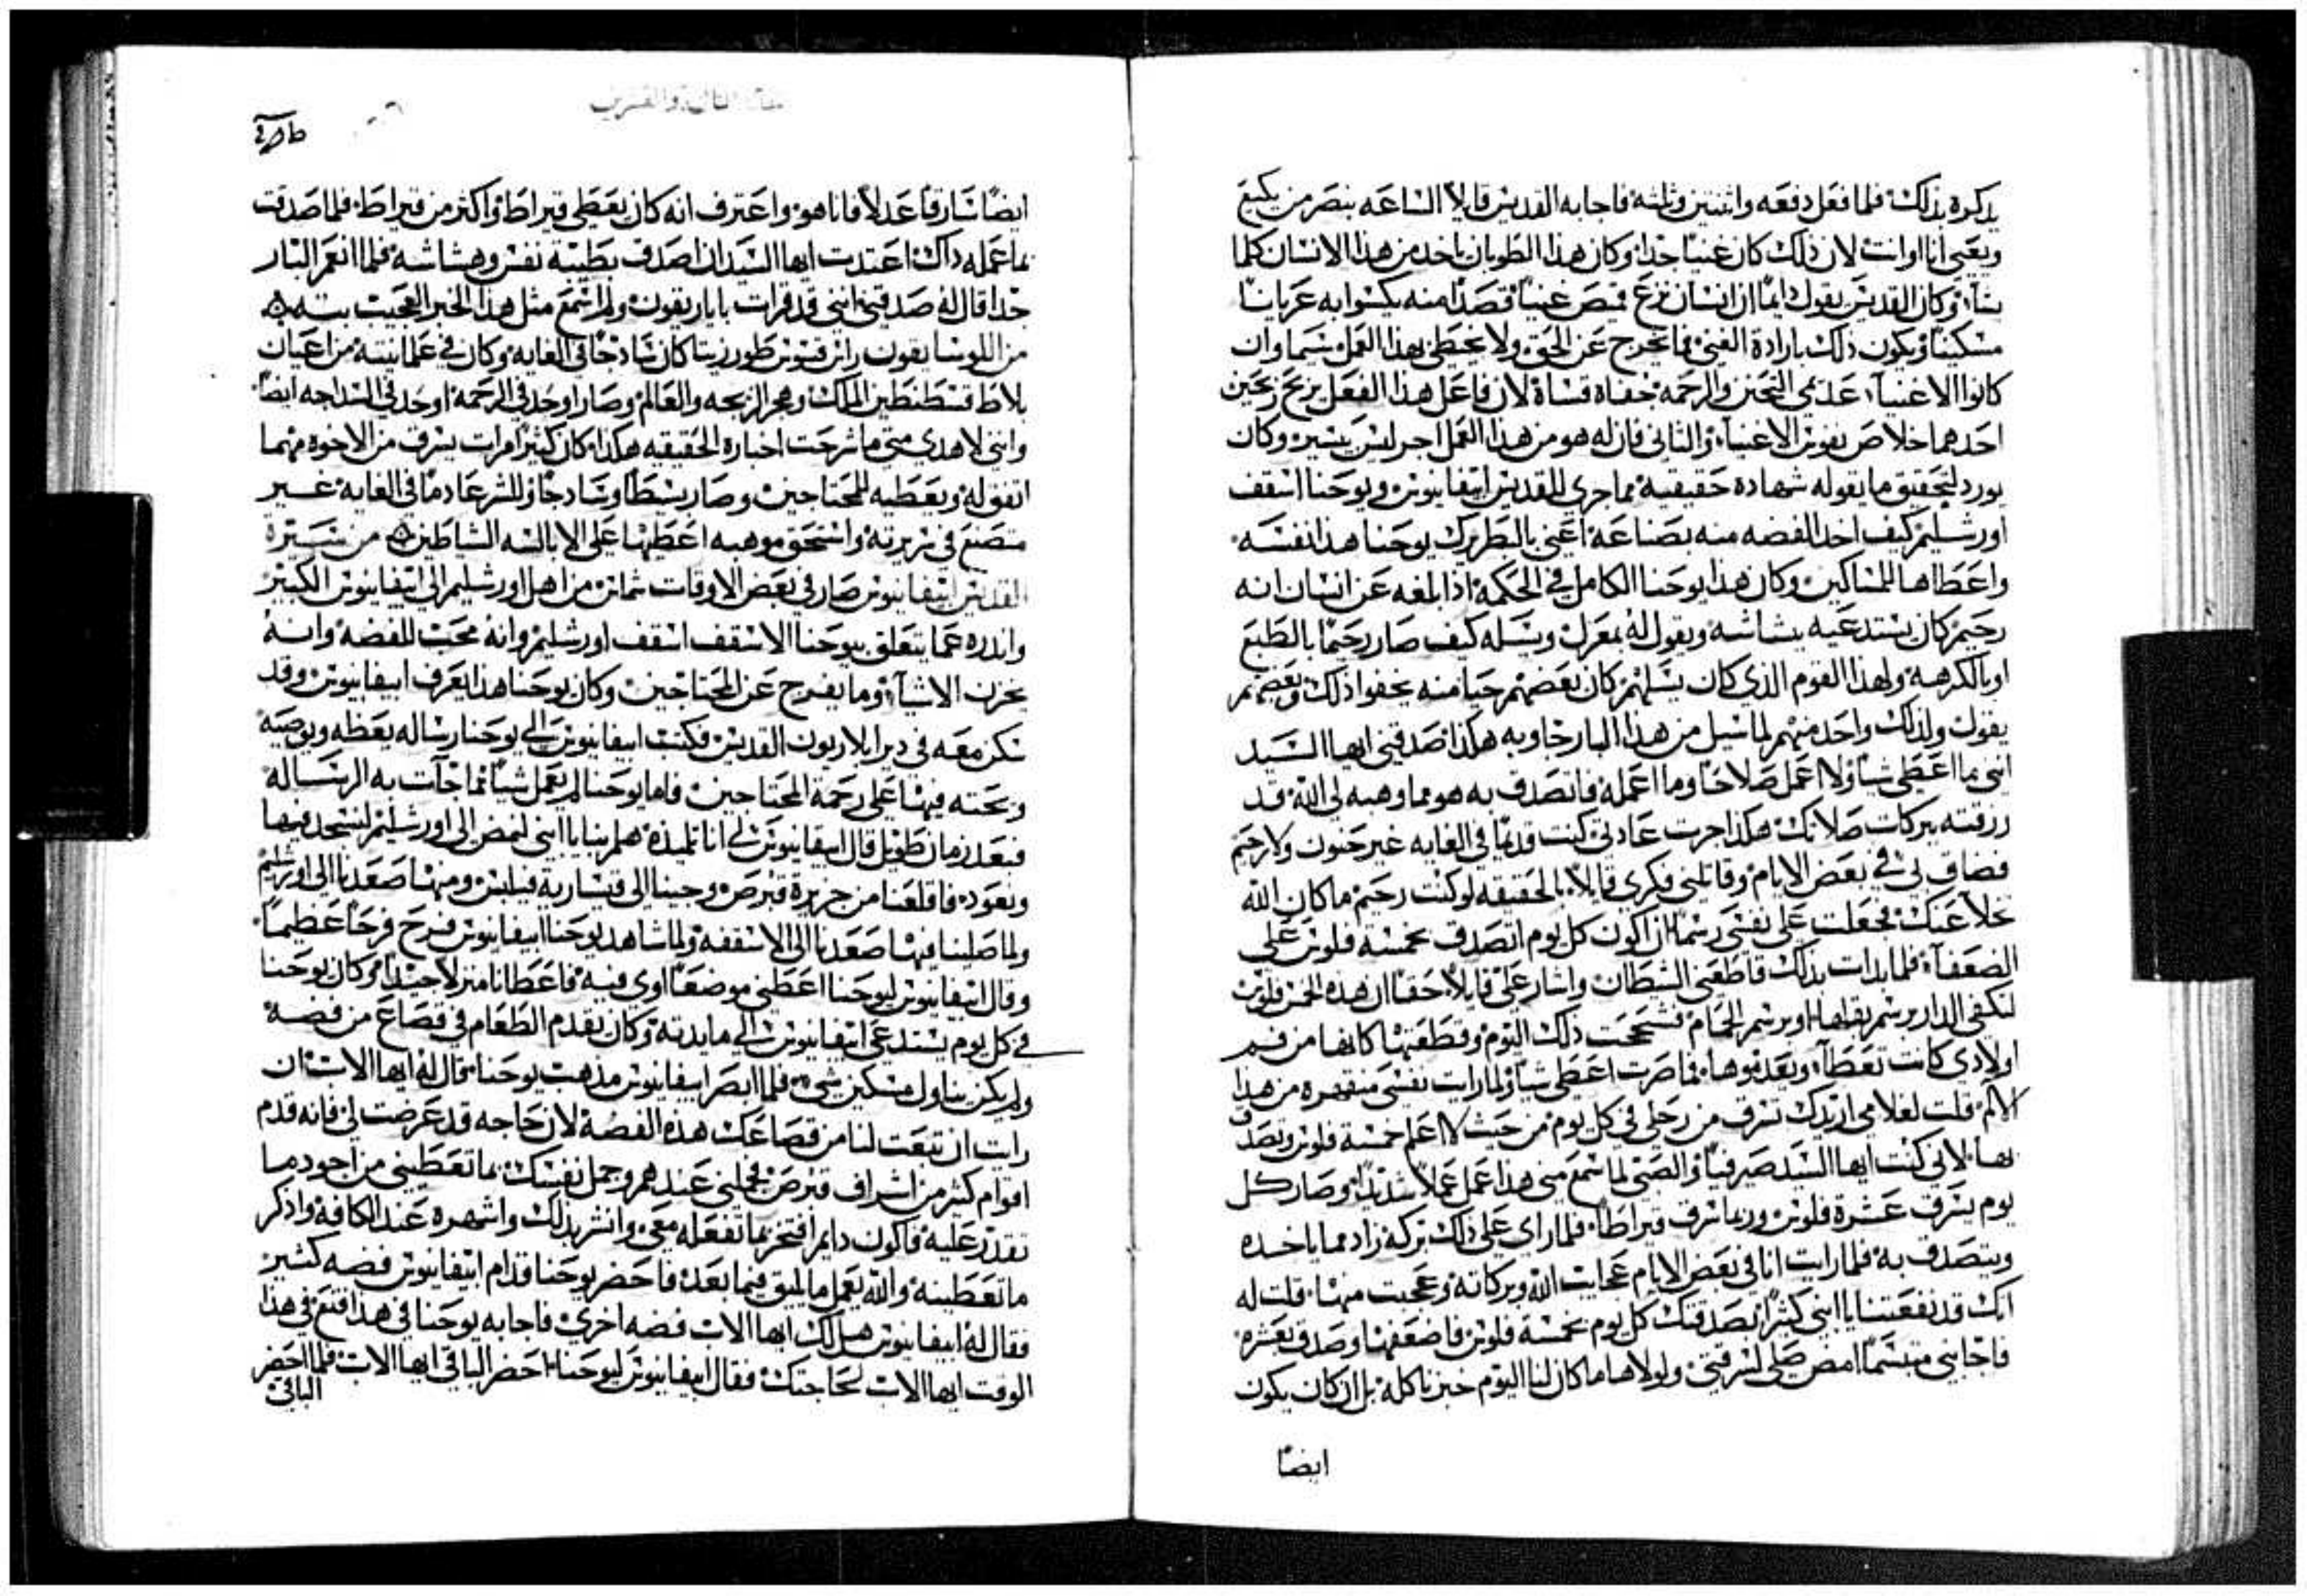 يدكره بذلك فلما فعل دفعه واثنتين وثلثه فاجابه القديس قايلاً الساعه ننصر من يكيع
ويعي انا او انت لان ذلك كان غنياً جداً وكان هذا الطوبان ياخد من هذا الانسان كلما
يشآء وكان القديس يقول دايماً ان انسان نزع قميص غنياً قصداً منه يكسوا به عرياناً
مسكيناً ويكون ذلك بارادة الغني فما يخرج عن الحق ولا يخطي بهذا العمل سيما وان
كانوا الاغنيآء عديمي التحنن والرحمه جفاه قساة لان فاعل هذا الفعل يربح ربحين
احدهما خلاص نفوس الاغنيآء والثاني فان له هو من هذا العمل اجر ليس يسير وكان
يورد لتحقيق ما يقوله شهاده حقيقيه مما جري للقديس ابيفانيوس ويوحنا اسقف
اورشليم كيف اخد الفضه منه بصناعه اعني بالبطريرك يوحنا هدا نفسه
واعطاها للمساكين وكان هذا يوحنا الكامل في الحكمه اذا بلغه عن انسان انه
رحيم كان يستدعيه ببشاشه ويقول له بمعزل ويسله كيف صار رحيماً بالطبع
او بالكرهه ولهذا القوم الذي كان يسلهم كان بعضهم حيا منه يخفوا ذلك وبعضهم
يقول ولذلك واحد منهم لما سيل من هذا البار جاوبه هكذا صدقني ايها السيد
انني ما اعطي شياً ولا اعمل صلاحاً وما اعمله فاتصدق به هو مما وهبه لي الله قد
رزقته ببركات صلاتك هكذا جرت عادتي كنت قديماً في الغايه غير حنون ولا رحيم
فضاق لي في بعض الايام وقاتلني فكري قايلاً بالحقيقه لو كنت رحيم ما كان الله
تخلا عنك فجعلت علي نفسي رسماً ان اكون كل يوم اتصدق بخمسة فلوس علي
الضعفآء فلما بدات بذلك قاطعني الشيطان واشار علي قايلاً حقاً ان هذه الخمس فلوس
لتكفي الدار برسم بقلها او برسم الحمام فشححت ذلك اليوم وقطعتها كانها من فم
اولادي كانت تعطآ وبعد نموها فما صرت اعطي شياً ولما رايت نفسي منقهره من هذا
الالم قلت لغلامي اريدك تسرق من رحلي في كل يوم من حيث لا اعلم خمسة فلوس وتصدق
بها لاني كنت ايها السيد صيرفياً والصبي لما سمع مني هذا عمل عملاً شديداً وصار كل
يوم يسرق عشرة فلوس وربما سرق قيراطاً فلما راي علي ذلك بركه زاد مما ياخده
ويتصدق به فلما رايت انا في بعض الايام عجايب الله وبركاته وعجبت منها قلت له
انك قد نفعتنا يا ابني كثيراً بصدقتك كل يوم بخمسة فلوس فاضعفها وصدق بعشره
فاجابني متبسماً امض صلي لسرقتي ولولاها ما كان لنا اليوم خبز ناكله بل ان كان يكون
ايضاً
ايضاً سارقاً عدلاً فانا هو واعترف انه كان يعطي قيراط واكثر من قيراط فلما صدقت
بما عمله ذاك اعتدت ايها السيد ان اصدق بطيبة نفس وهشاشه فلما انعم البار
جداً قال له صدقني انني قد قرات بابا ريقون ولم اسمع مثل هذا الخبر العجيب بته
من اللوسا يقون كان ساذجاً في الغايه وكان في علمانيته من اعيان
بلاط قسطنطين الملك وهجر الزيجه والعالم وصار اوحد في الرحمه اوحد في السداجه ايضاً
وانني لاهدي متي ما شرحت اخباره الحقيقيه هكذا كان كثيراً مرات يسرق من الاخوه مهما
اتفق له ويعطيه للمحتاجين وصار بسيطاً وساذجاً وللشر عادماً في الغايه غير
متصنع في سريرته واستحق موهبه اعطيها علي الابالسه الشياطين من سيرة
القديس ابيفانيوس صار في بعض الاوقات شماس من اهل اورشليم الي ابيفانيوس الكبير
واندره عما يتعلق بيوحنا الاسقف اسقف اورشليم وانه محب للفضه وانه
يخزن الاشيآء وما يفرج عن المحتاجين وكان يوحنا هذا يعرف ابيفانيوس وقد
سكن معه في دير ايلاريون القديس فكتب ابيفانيوس الي يوحنا رساله يعظه ويوصيه
ويحته فيها علي رحمة المحتاجين فاما يوحنا لم يعمل شياً مما جآت به الرساله
فبعد زمان طويل قال ابيفانيوس لي انا تلميذه هلم بنا يا ابني لنمض الي اورشليم لنسجد فيها
ونعود فاقلعنا من جزيرة قبرص وجينا الي قيسارية فيلبس ومنها صعدنا الي اورشليم
ولما صلينا فيها صعدنا الي الاسقفه ولما شاهد يوحنا ابيفانيوس فرح فرحاً عظيماً
وقال ابيفانيوس ليوحنا اعطني موضعاً اوي فيه فاعطانا منزلاً جيداً وكان يوحنا
في كل يوم يستدعي ابيفانيوس الي مايدته وكان يقدم الطعام في قصاع من فضه
ولم يكن يناول مسكين شي فلما ابصر ابيفانيوس مذهب يوحنا قال له ايها الاب ان
رايت ان تبعت لنا من قصاعك هذه الفضه لان حاجه قد عرضت لي فانه قدم
اقوام كثير من اشراف قبرص فجلني عندهم وجمل نفسك بما تعطيني من اجود ما
تقدر عليه فاكون دايم افتخر بما تفعله معي وانشر بذلك واشهره عند الكافه واذكر
ما تعطينه والله يعمل ما يليق فيما بعد فاحضر يوحنا قدام ابيفانيوس فضه كثير
فقال له ابيفانيوس هل لك ايها الاب فضه اخري فاجابه يوحنا في هذا اقنع في هذا
الوقت ايها الاب لحاجتك فقال ابيفانيوس ليوحنا احضر الباقي ايها الاب فلما احضر
الباقي